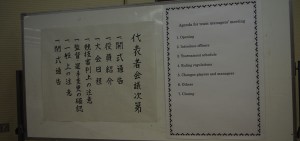 代表者会議次第
一 開式通告
一 役員紹介
一 大会日程
一 競技審判上の注意
一 監督選手変更の確認
一 一般上の注意
一 閉式通告
Agenda for team managers' meeting
1. Opening
2. Introduce officers
3. Tournament schedule
4. Refree regulations
5. Changes players and managers
6. Others
7. Closing